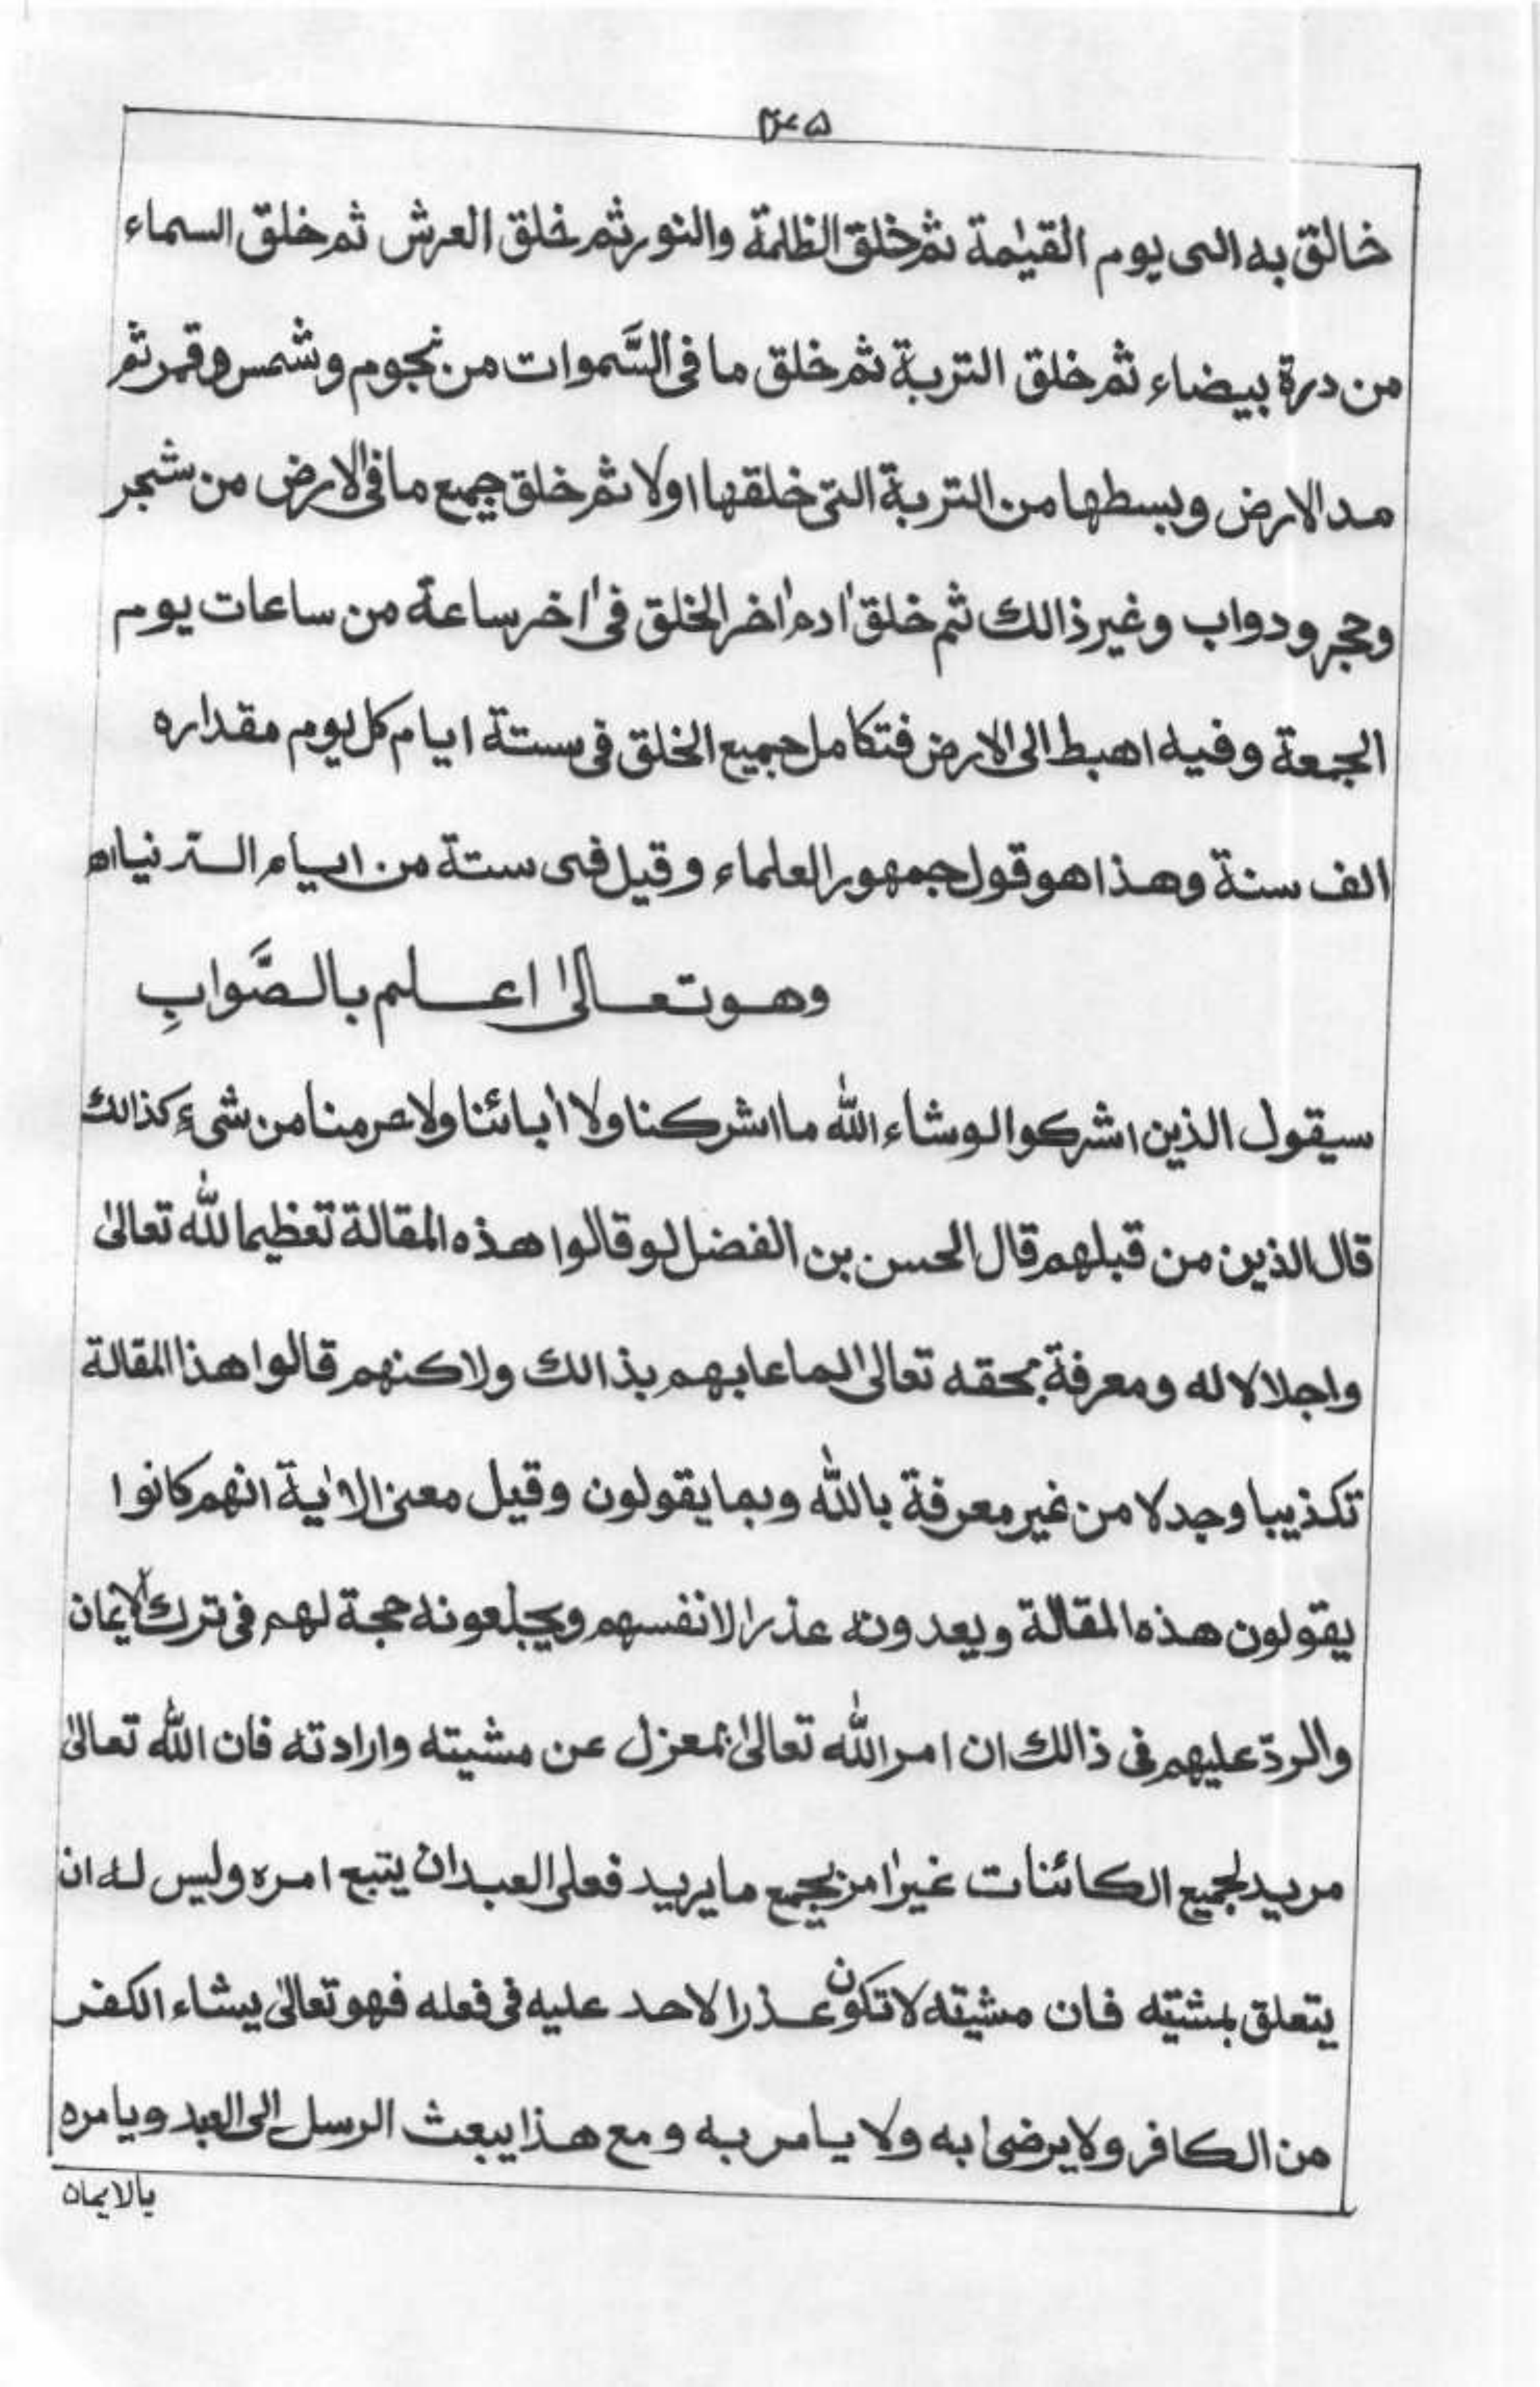 خالق به الى يوم القيٰمة ثم خلق الظلمة والنور ثم خلق العرش ثم خلق السماء
من درة بيضاء ثم خلق التربة ثم خلق ما فى السَّموات من نجوم وشمس وقمر ثم
مد الارض وبسطها من التربة التى خلقها اولا ثم خلق جميع ما فى الارض من شجر
وحجر ودواب وغير ذالك ثم خلق اٰدم اٰخر الخلق فى اٰخر ساعة من ساعات يوم
الجمعة وفيه اهبط الى الارض فتكامل جميع الخلق فى ستة ايام كل يوم مقداره
الف سنة وهذا هو قول جمهور العلماء وقيل فى ستة من ايام الدنيا اه
وهو تعالىٰ اعلم بالصَّوابِ
سيقول الذين اشركوا لوشاء اللّٰه ما اشركنا ولا أبائنا ولا حرمنا من شىءٍ كذالك
قال الذين من قبلهم قال الحسن بن الفضل لو قالوا هذه المقالة تعظيما للّٰه تعالىٰ
واجلالا له ومعرفة بحقه تعالىٰ لما عابهم بذالك ولاكنهم قالوا هذا المقالة
تكذيبا وجدلا من غير معرفة باللّٰه وبما يقولون وقيل معنى الاٰية انهم كانوا
يقولون هذه المقالة ويعدونه عذرا لانفسهم ويجلعونه حجة لهم فى ترك الايمان
والردّ عليهم فى ذالك ان امر اللّٰه تعالىٰ بمعزل عن مشيته وارادته فان اللّٰه تعالىٰ
مريد لجميع الكائنات غير اٰمر بجميع ما يريد فعلى العبد ان يتبع امره وليس له ان
يتعلق بمشيته فان مشيته لا تكون عذرا لاحد عليه فى فعله فهو تعالىٰ يشاء الكفر
من الكافر ولا يرضىٰ به ولا يامر به ومع هذا يبعث الرسل الى العبد ويامره
بالايمان